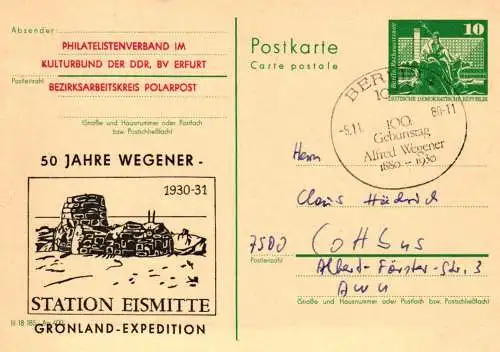 Absender:
PHILATELISTENVERBAND IM
KULTURBUND DER DDR, BV ERFURT
Postleitzahl
BEZIRKSARBEITSKREIS POLARPOST
(Straße und Hausnummer oder Postfach
bzw. Postschließfach)
50 JAHRE WEGENER-
1930-31
STATION EISMITTE
GRÖNLAND-EXPEDITION
III 18 185
Postkarte
Carte postale
10
DEUTSCHE DEMOKRATISCHE REPUBLIK
BERLIN
-5.11. 80-11
100.
Geburtstag
Alfred Wegener
1880 - 1930
Herrn
Claus
7500 Cottbus
Postleitzahl
Albert-Förster-Str. 3
(Straße und Hausnummer oder Postfach bzw. Postschließfach)